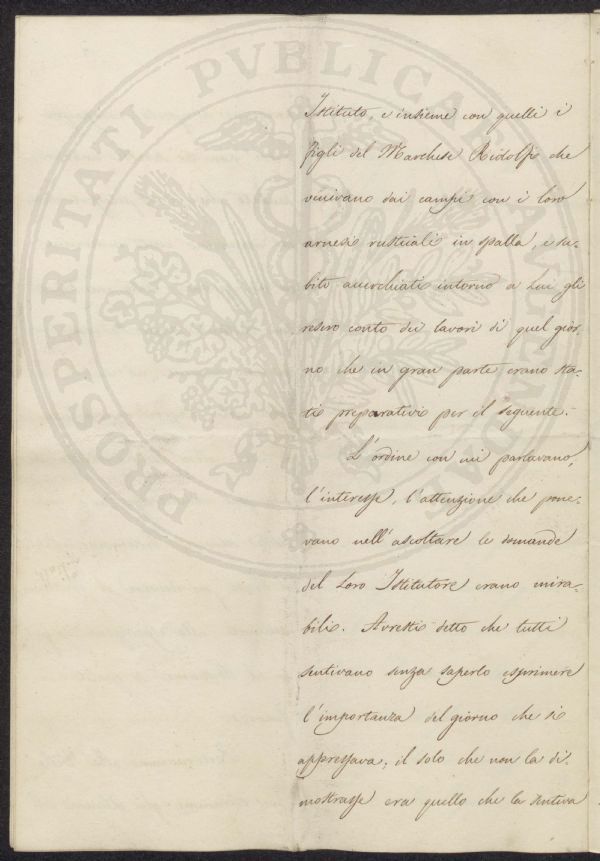 PROSPERITATI PVBLICAE AVGENDAE
Istituto, e insieme con quelli i
figli del Marchese Ridolfi che
venivano dai campi con i loro
arnesi rusticali in spalla, e su-
bito accerchiati intorno a Lui gli
resero conto dei lavori di quel gior-
no che in gran parte erano sta-
ti preparativi per il seguente.
L'ordine con cui parlavano,
l'interesse, l'attenzione che pone-
vano nell'ascoltare le domande
del Loro Istitutore erano mira-
bili. Avresti detto che tutti
sentivano senza saperlo esprimere
l'importanza del giorno che si
appressava; il solo che non la di-
mostrasse era quello che la sentiva